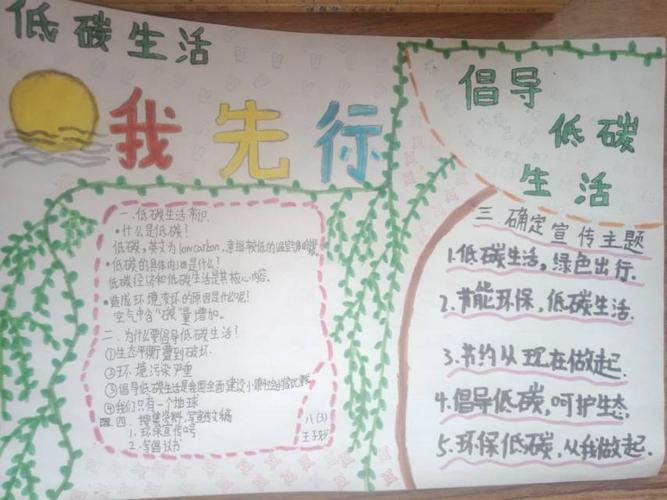 低碳生活
我先行
倡导
低碳
生活
一.低碳生活常识.
•什么是低碳?
低碳,英文为lowcarbon,意指较低的温室气体
•低碳的具体内涵是什么?
低碳经济和低碳生活是其核心内容.
•造成环境变坏的原因是什么呢?
空气中含"碳"量增加。
二.为什么要倡导低碳生活!
①生态平衡遭到破坏.
②环境污染严重
③倡导低碳生活是全国全面建设小康社会的
④我们只有一个地球
四 搜集资料,写宣传文稿
1.环保宣传号
2.写倡议书
八(3)
王
三.确定宣传主题
1.低碳生活,绿色出行.
2.节能环保,低碳生活.
3.节约从现在做起.
4.倡导低碳,呵护生态.
5.环保低碳,从我做起.